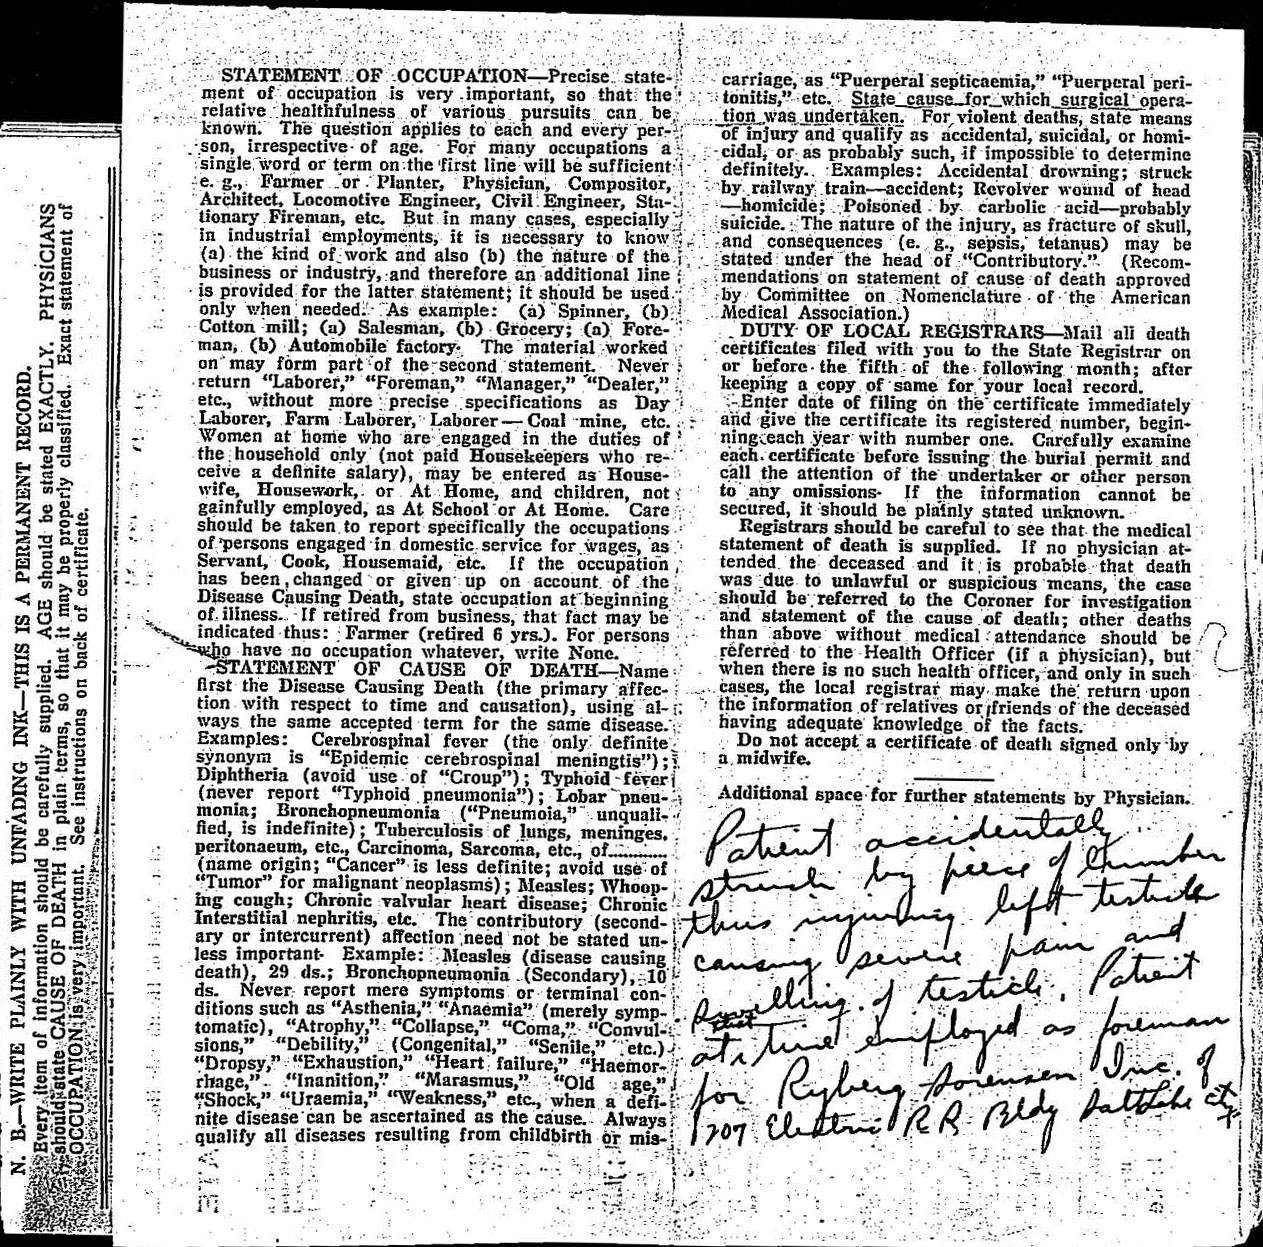 N. B.—WRITE PLAINLY WITH UNFADING INK—THIS IS A PERMANENT RECORD.
Every item of Information should be carefully supplied. AGE should be stated EXACTLY. PHYSICIANS
should state CAUSE OF DEATH in plain terms, so that it may be properly classified. Exact statement of
OCCUPATION is very important. See instructions on back of certificate.
STATEMENT OF OCCUPATION—Precise state-
ment of occupation is very important, so that the
relative healthfulness of various pursuits can be
known. The question applies to each and every per-
son, irrespective of age. For many occupations a
single word or term on the first line will be sufficient
e. g., Farmer or Planter, Physician, Compositor,
Architect, Locomotive Engineer, Civil Engineer, Sta-
tionary Fireman, etc. But in many cases, especially
in industrial employments, it is necessary to know
(a) the kind of work and also (b) the nature of the
business or industry, and therefore an additional line
is provided for the latter statement; it should be used
only when needed. As example: (a) Spinner, (b)
Cotton mill; (a) Salesman, (b) Grocery; (a) Fore-
man, (b) Automobile factory. The material worked
on may form part of the second statement. Never
return "Laborer," "Foreman," "Manager," "Dealer,"
etc., without more precise specifications as Day
Laborer, Farm Laborer, Laborer—Coal mine, etc.
Women at home who are engaged in the duties of
the household only (not paid Housekeepers who re-
ceive a definite salary), may be entered as House-
wife, Housework, or At Home, and children, not
gainfully employed, as At School or At Home. Care
should be taken to report specifically the occupations
of persons engaged in domestic service for wages, as
Servant, Cook, Housemaid, etc. If the occupation
has been changed or given up on account of the
Disease Causing Death, state occupation at beginning
of illness. If retired from business, that fact may be
indicated thus: Farmer (retired 6 yrs.). For persons
who have no occupation whatever, write None.
STATEMENT OF CAUSE OF DEATH—Name
first the Disease Causing Death (the primary affec-
tion with respect to time and causation), using al-
ways the same accepted term for the same disease.
Examples: Cerebrospinal fever (the only definite
synonym is "Epidemic cerebrospinal meningtis");
Diphtheria (avoid use of "Croup"); Typhoid fever
(never report "Typhoid pneumonia"); Lobar pneu-
monia; Bronchopneumonia ("Pneumoia," unquali-
fied, is indefinite); Tuberculosis of lungs, meninges,
peritonaeum, etc., Carcinoma, Sarcoma, etc., of............
(name origin; "Cancer" is less definite; avoid use of
"Tumor" for malignant neoplasms); Measles; Whoop-
ing cough; Chronic valvular heart disease; Chronic
Interstitial nephritis, etc. The contributory (second-
ary or intercurrent) affection need not be stated un-
less important. Example: Measles (disease causing
death), 29 ds.; Bronchopneumonia (Secondary), 10
ds. Never report mere symptoms or terminal con-
ditions such as "Asthenia," "Anaemia" (merely symp-
tomatic), "Atrophy," "Collapse," "Coma," "Convul-
sions," "Debility," (Congenital," "Senile," etc.)
"Dropsy," "Exhaustion," "Heart failure," "Haemor-
rhage," "Inanition," "Marasmus," "Old age,"
"Shock," "Uraemia," "Weakness," etc., when a defi-
nite disease can be ascertained as the cause. Always
qualify all diseases resulting from childbirth or mis-
carriage, as "Puerperal septicaemia," "Puerperal peri-
tonitis," etc. State cause for which surgical opera-
tion was undertaken. For violent deaths, state means
of injury and qualify as accidental, suicidal, or homi-
cidal, or as probably such, if impossible to determine
definitely. Examples: Accidental drowning; struck
by railway train—accident; Revolver wound of head
—homicide; Poisoned by carbolic acid—probably
suicide. The nature of the injury, as fracture of skull,
and consequences (e. g., sepsis, tetanus) may be
stated under the head of "Contributory." (Recom-
mendations on statement of cause of death approved
by Committee on Nomenclature of the American
Medical Association.)
DUTY OF LOCAL REGISTRARS—Mail all death
certificates filed with you to the State Registrar on
or before the fifth of the following month; after
keeping a copy of same for your local record.
Enter date of filing on the certificate immediately
and give the certificate its registered number, begin-
ning each year with number one. Carefully examine
each certificate before issuing the burial permit and
call the attention of the undertaker or other person
to any omissions. If the information cannot be
secured, it should be plainly stated unknown.
Registrars should be careful to see that the medical
statement of death is supplied. If no physician at-
tended the deceased and it is probable that death
was due to unlawful or suspicious means, the case
should be referred to the Coroner for investigation
and statement of the cause of death; other deaths
than above without medical attendance should be
referred to the Health Officer (if a physician), but
when there is no such health officer, and only in such
cases, the local registrar may make the return upon
the information of relatives or friends of the deceased
having adequate knowledge of the facts.
Do not accept a certificate of death signed only by
a midwife.
Additional space for further statements by Physician.
Patient accidentally
struck by piece of lumber
thus injuring left testicle
causing severe pain and
swelling of testicle. Patient
at that time employed as foreman
for Ryberg Sorensen Inc. of
707 Electric RR Bldg Salt Lake City